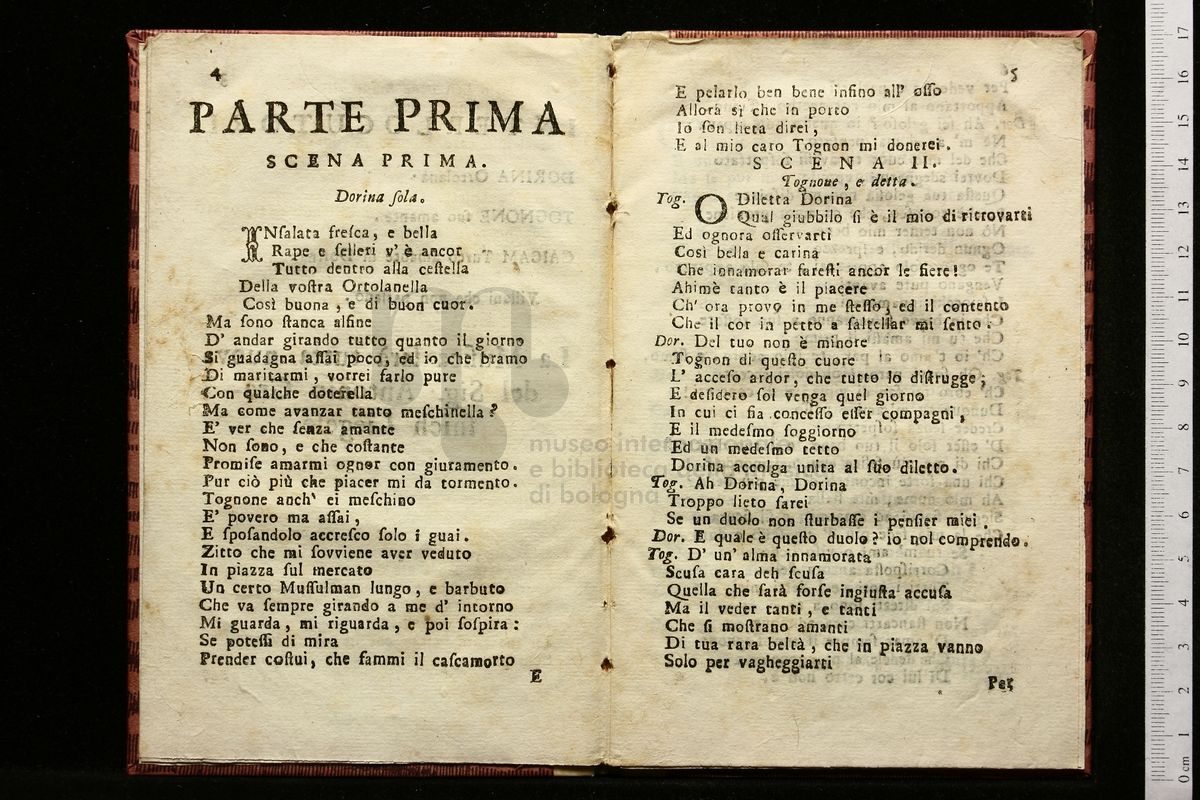 4
PARTE PRIMA
SCENA PRIMA.
Dorina ſola.
INſalata freſca, e bella
Rape e ſelleri v' è ancor
Tutto dentro alla ceſtella
Della voſtra Ortolanella
Così buona, e di buon cuor.
Ma ſono ſtanca alfine
D' andar girando tutto quanto il giorno
Si guadagna aſſai poco, ed io che bramo
Di maritarmi, vorrei farlo pure
Con qualche doterella
Ma come avanzar tanto meſchinella?
E' ver che ſenza amante
Non ſono, e che coſtante
Promiſe amarmi ognor con giuramento.
Pur ciò più che piacer mi da tormento.
Tognone anch' ei meſchino
E' povero ma aſſai,
E ſpoſandolo accreſco ſolo i guai.
Zitto che mi ſovviene aver veduto
In piazza ſul mercato
Un certo Muſſulman lungo, e barbuto
Che va ſempre girando a me d' intorno
Mi guarda, mi riguarda, e poi ſoſpira:
Se poteſſi di mira
Prender coſtui, che fammi il caſcamorto
E
5
E pelarlo ben bene infino all' oſſo
Allora sì che in porto
Io ſon lieta direi,
E al mio caro Tognon mi donerei.
SCENA II.
Tognone, e detta.
Tog. O Diletta Dorina
Qual giubbilo ſi è il mio di ritrovarti
Ed ognora oſſervarti
Così bella e carina
Che innamorar fareſti ancor le fiere!
Ahimè tanto è il piacere
Ch' ora provo in me ſteſſo, ed il contento
Che il cor in petto a ſaltellar mi ſento.
Dor. Del tuo non è minore
Tognon di queſto cuore
L' acceſo ardor, che tutto lo diſtrugge;
E deſidero ſol venga quel giorno
In cui ci ſia conceſſo eſſer compagni,
E il medeſmo ſoggiorno
Ed un medeſmo tetto
Dorina accolga unita al ſuo diletto.
Tog. Ah Dorina, Dorina
Troppo lieto ſarei
Se un duolo non ſturbaſſe i penſier miei.
Dor. E quale è queſto duolo? io nol comprendo.
Tog. D' un' alma innamorata
Scuſa cara deh ſcuſa
Quella che ſarà forſe ingiuſta accuſa
Ma il veder tanti, e tanti
Che ſi moſtrano amanti
Di tua rara beltà, che in piazza vanno
Solo per vagheggiarti
Per
museo
e biblioteca
di bologna
0 cm 1 2 3 4 5 6 7 8 9 10 11 12 13 14 15 16 17